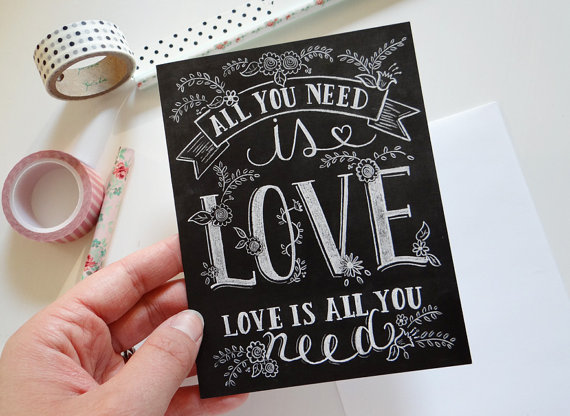 ALL YOU NEED
is
LOVE
LOVE IS ALL YOU
need